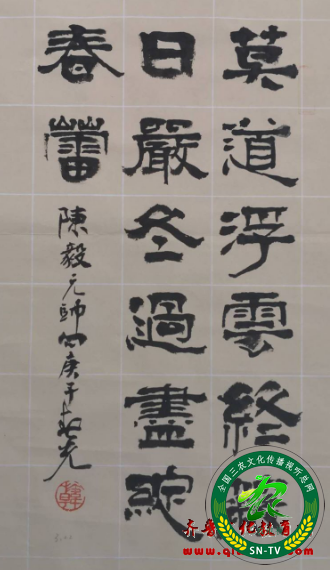 莫道浮雲終蔽
日嚴冬過盡綻
春蕾
陳毅元帥句庚子
全国三农文化传播视听总网
SN-TV